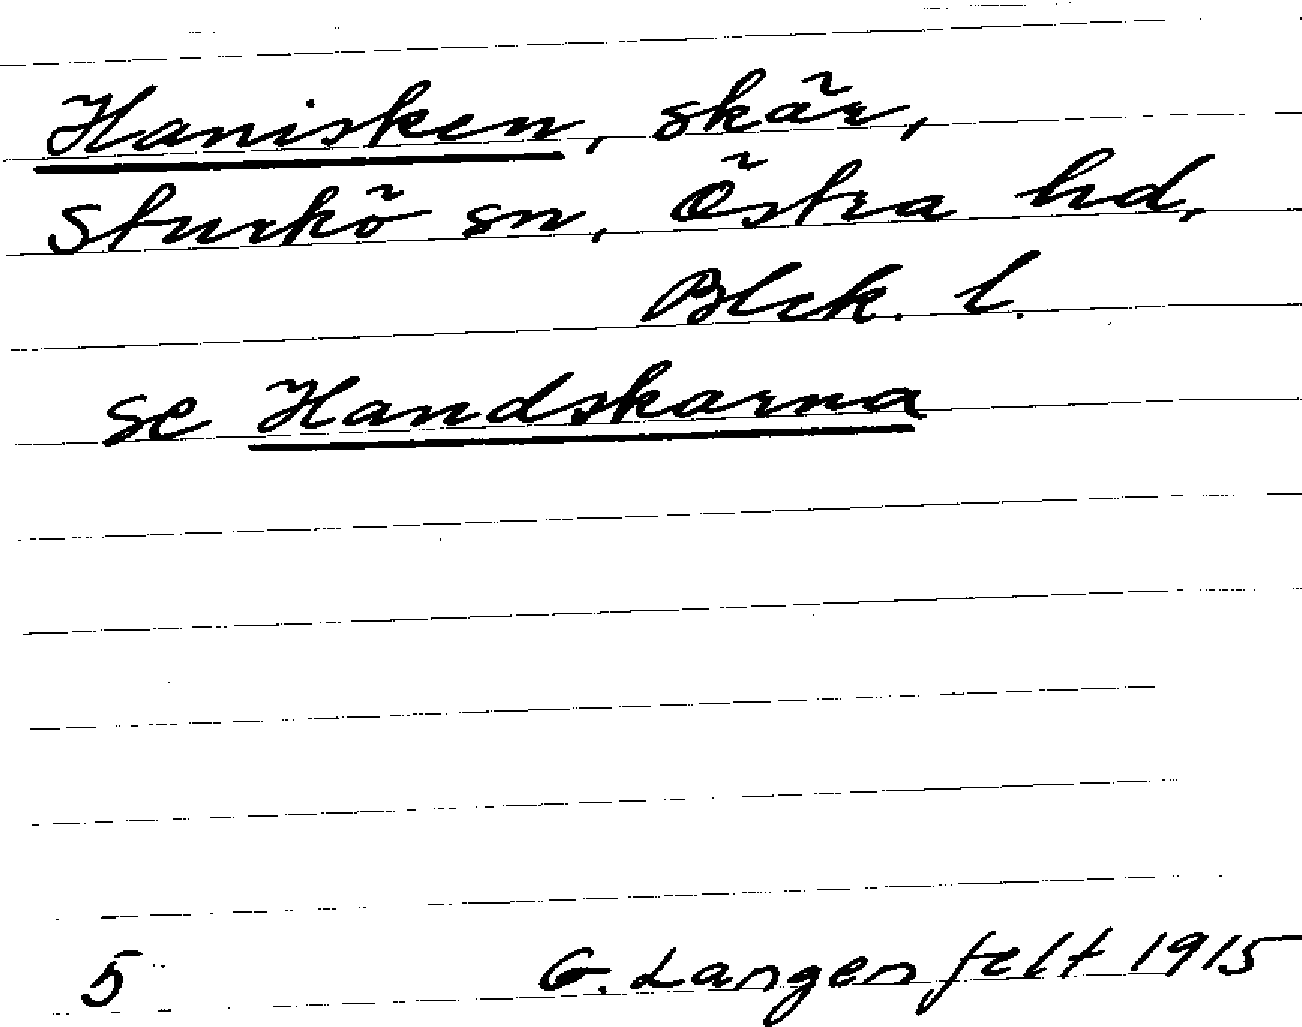 Hanisken, skär,
Sturkö sn, Östra hd,
Blek. l.
se Handskarna
5 G. Langenfelt 1915